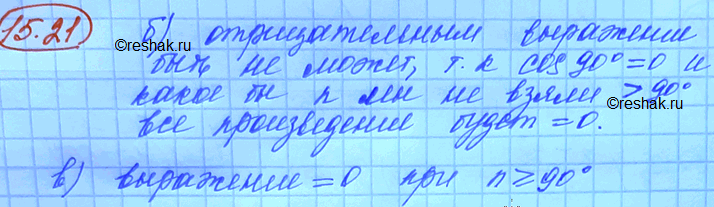 15.21
©reshak.ru
б) отрицательным выражение
быть не может, т.к cos 90°=0 и
какое бы n мы не взяли ≥90°
все произведение будет =0.
в) выражение =0 при n≥90°
©reshak.ru